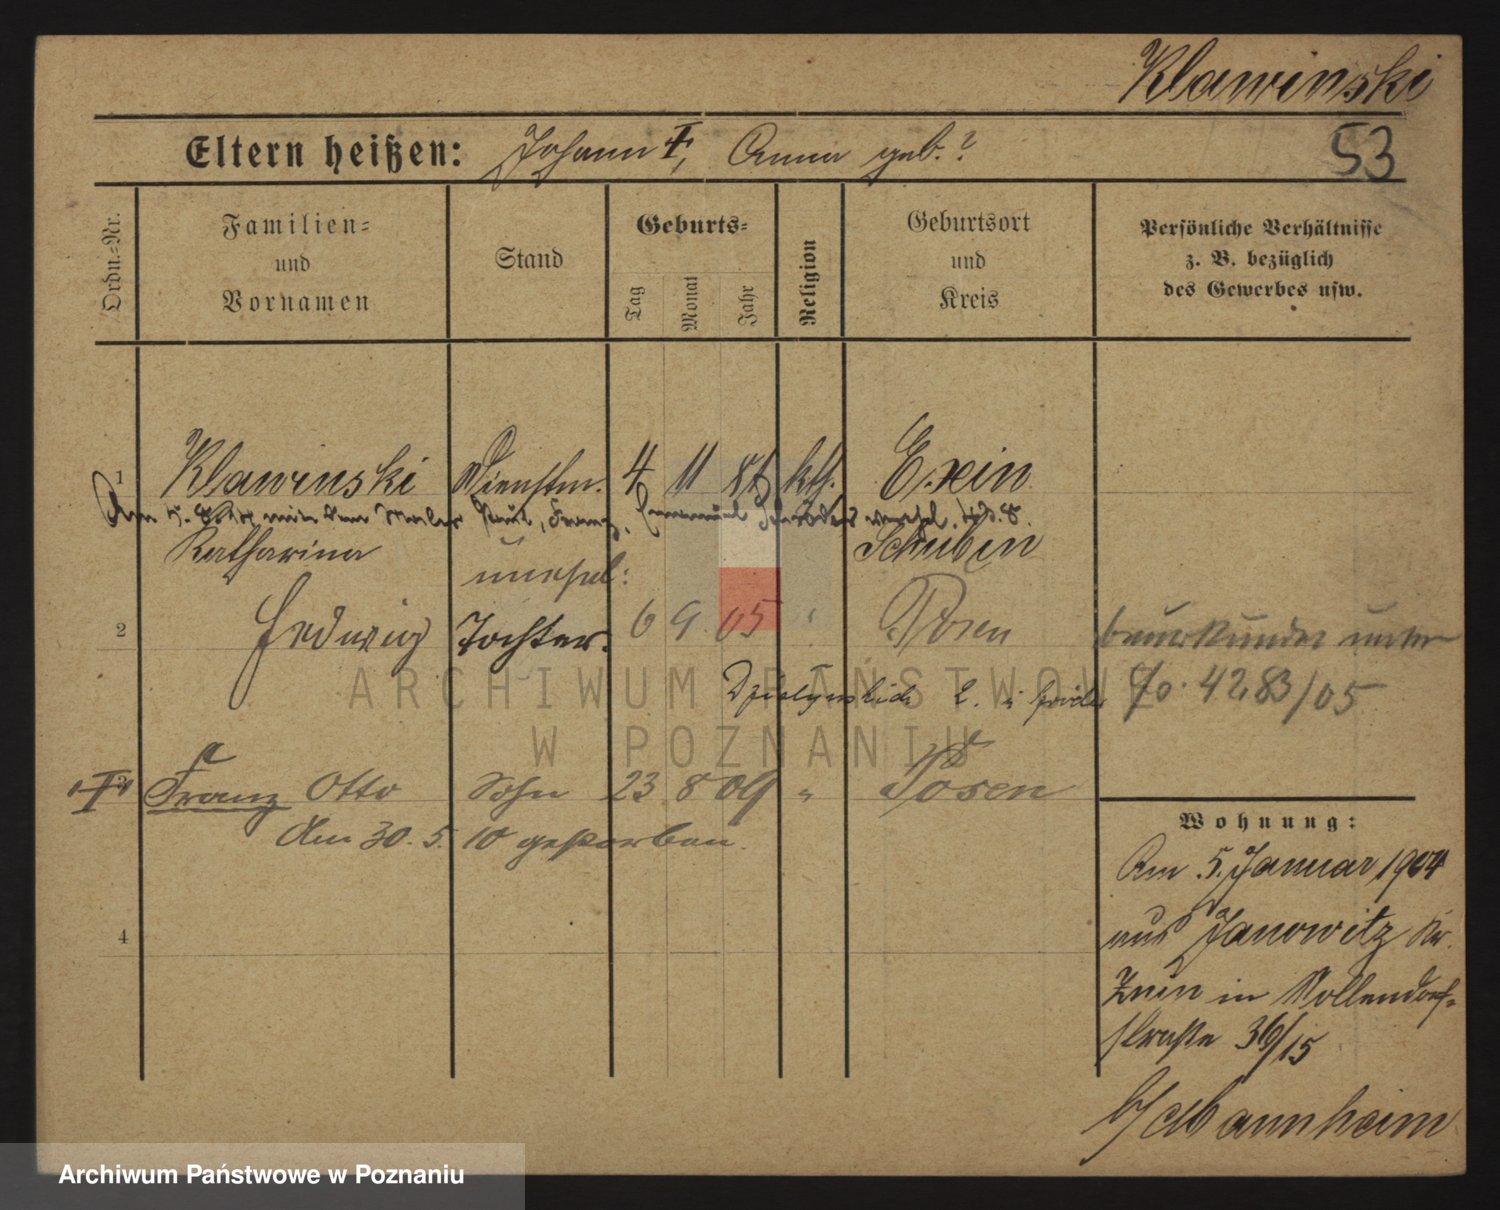 Klawinski
53
Eltern heißen: Johann †, Anna geb. ?
Ordn.-Nr.
Familien= und Vornamen
Stand
Geburts=
Tag
Monat
Jahr
Religion
Geburtsort und Kreis
Persönliche Verhältnisse
z. B. bezüglich
des Gewerbes usw.
1 Klawinski Dienstm. 4 11 kth. Exin
Am mit dem Maler Paul, Franz, Emanuel verehel.
Katharina unehel: Schubin
2 Hedwig Tochter. 6 9 05 Posen beurkundet unter
No. 4283/05
Franz Otto Sohn 23 8 09 " Posen
am 30. 5. 10 gestorben.
4
Wohnung:
Am 5. Januar 1904
aus Janowitz Kr.
Znin in Wollendorf=
straße 36/15
b/ Mannheim
ARCHIWUM PAŃSTWOWE
W POZNANIU
Archiwum Państwowe w Poznaniu